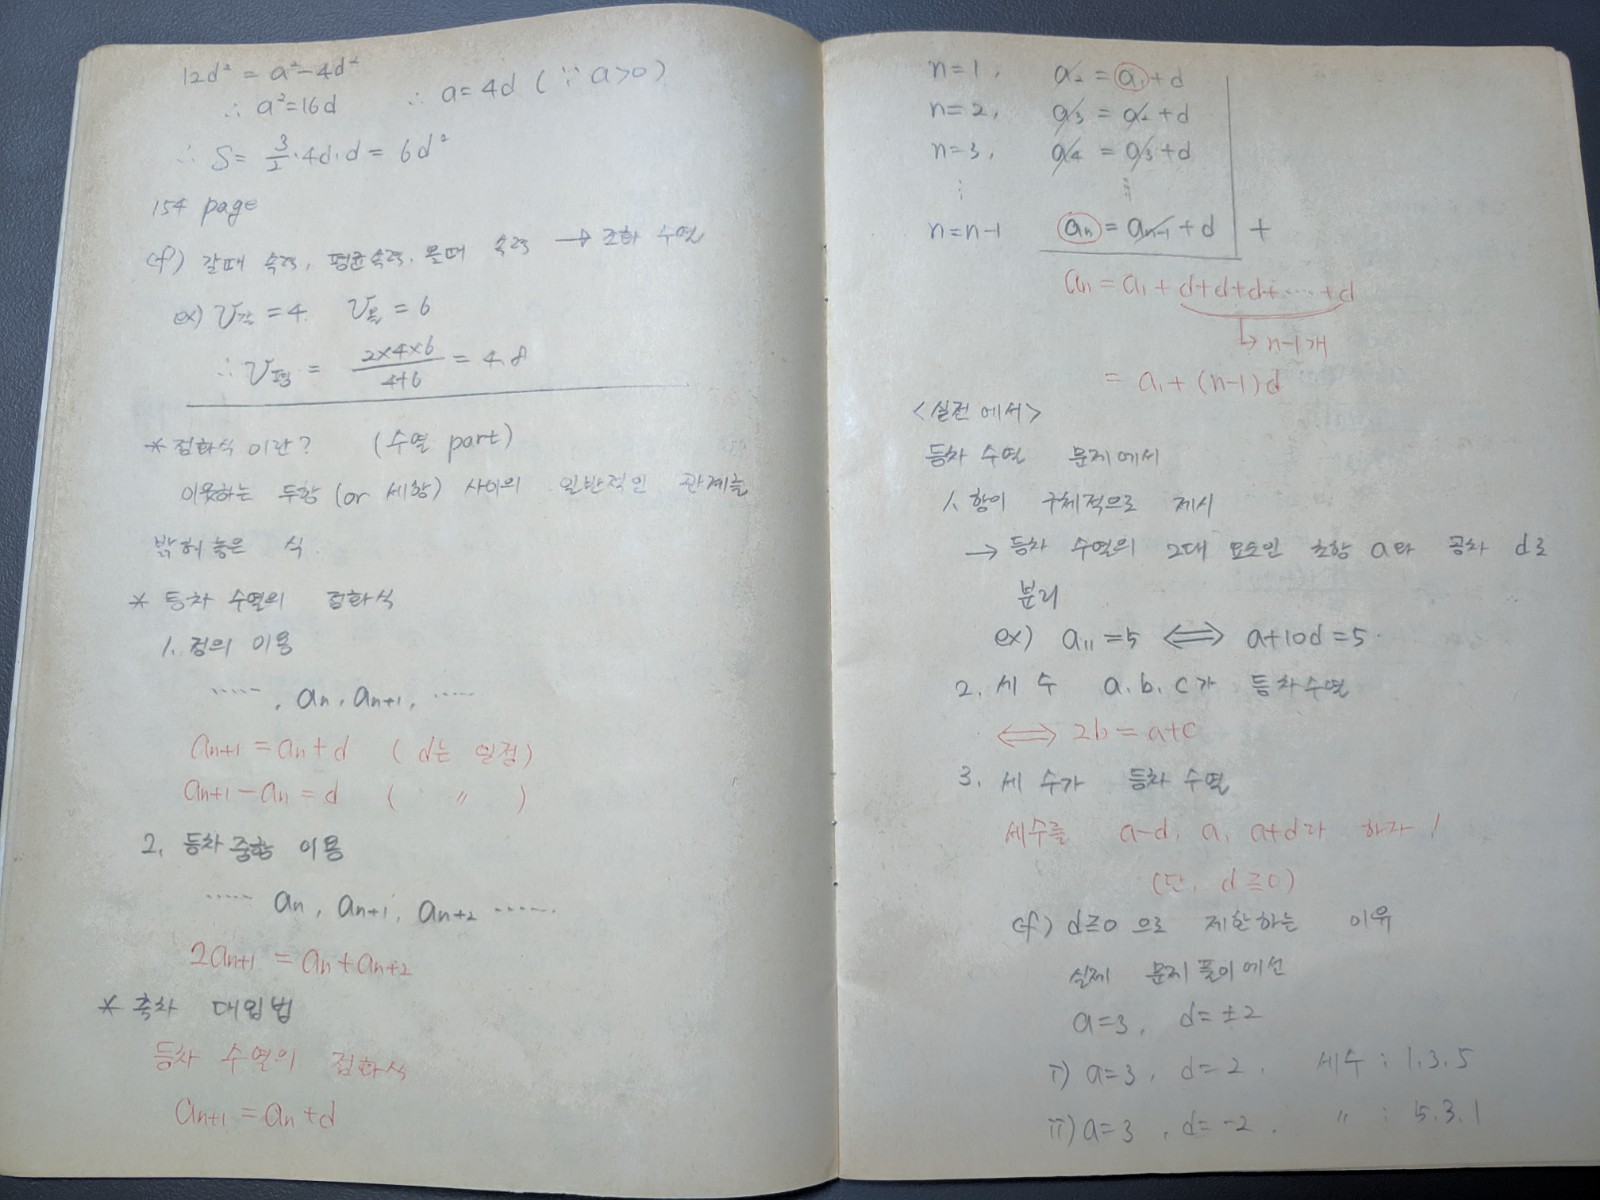 12d² = a²-4d²
∴ a²=16d ∴ a=4d (∵ a>0)
∴ S= 3/2·4d·d = 6d²
154 page
cf) 갈때 속력, 평균속력, 올때 속력 → 조화 수열
ex) V갈 =4 V올 =6
∴ V평 = 2×4×6/4+6 = 4.8
* 점화식 이란? (수열 part)
이웃하는 두항 (or 세항) 사이의 일반적인 관계를
밝혀 놓은 식.
* 등차 수열의 점화식
1. 정의 이용
······, an, an+1, ······
an+1 = an+d (d는 일정)
an+1-an = d ( 〃 )
2. 등차 중항 이용
······ an, an+1, an+2 ······
2an+1 = an+an+2
* 축차 대입법
등차 수열의 점화식
an+1 = an+d
n=1, a2 = a1+d
n=2, a3 = a2+d
n=3, a4 = a3+d
⋮ ⋮
n=n-1 an = an-1+d +
an = a1+d+d+d+·····+d
↳ n-1개
= a1+(n-1)d
<실전에서>
등차 수열 문제에서
1. 항이 구체적으로 제시
→ 등차 수열의 2대 요소인 초항 a와 공차 d로
분리
ex) a11=5 ⟺ a+10d=5.
2. 세 수 a, b, c가 등차수열
⟺ 2b=a+c
3. 세 수가 등차 수열
세수를 a-d, a, a+d라 하자!
(단, d≧0)
cf) d≧0 으로 제한하는 이유
실제 문제풀이에선
a=3, d=±2
i) a=3, d=2. 세수 : 1.3.5
ii) a=3, d=-2. 〃 : 5.3.1